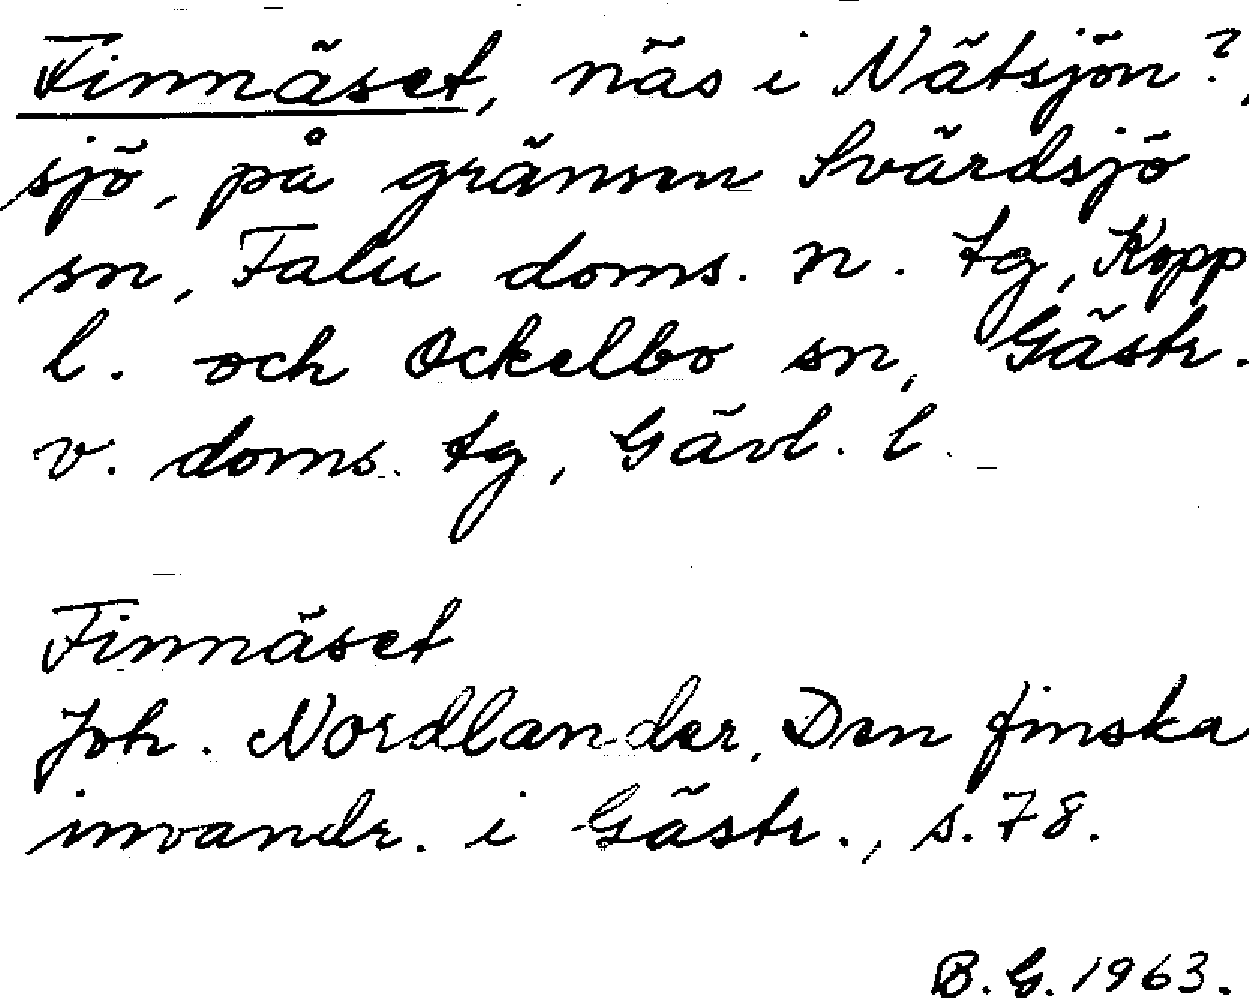 Finnäset, näs i Nätsjön?,
sjö, på gränsen Svärdsjö
sn, Falu doms. n. tg, Kopp
l. och Ockelbo sn, Gästr.
v. doms. tg, Gävl. l
Finnäset
Joh. Nordlander, Den finska
invandr. i Gästr., s. 78.
B. G. 1963.